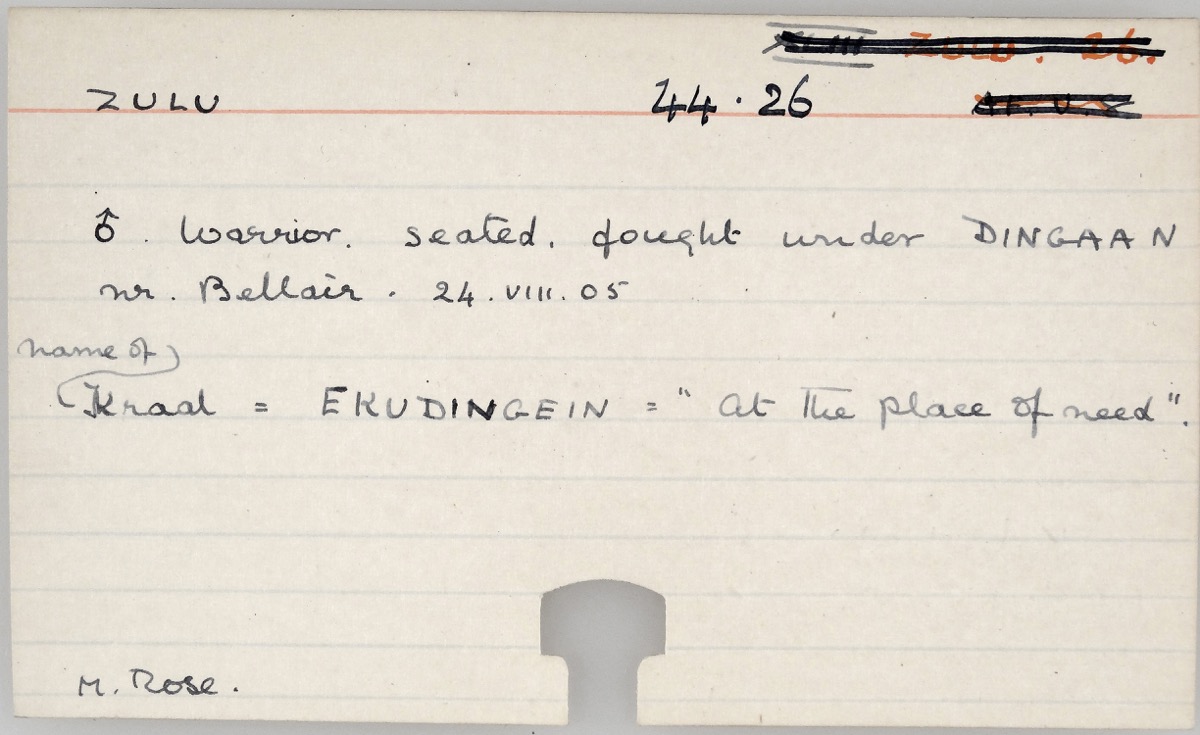 ZULU. 26.
ZULU 44.26
♂. Warrior. seated. fought under DINGAAN
nr. Bellair. 24.VIII.05
name of
Kraal = EKUDINGEIN = "at the place of need".
M. Rose.